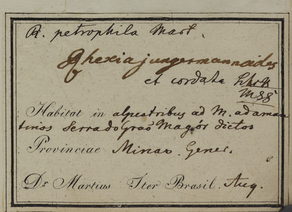 R. petrophila Mart.
Rhexia jungermannoides
et cordata
Mss
Habitat in alpestribus ad M. adaman
tinos Serra do Grao Magór dictos
Provinciae Minar. Gener.
Dr Martius Iter Brasil. Aug.